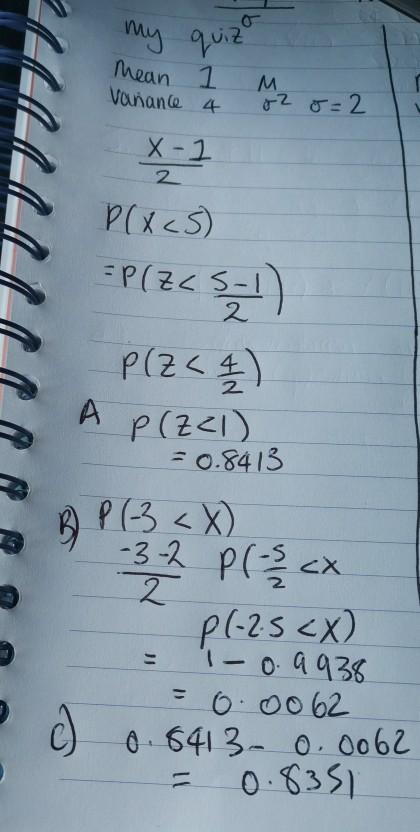 σ
my quiz
Mean 1 M
Variance 4 σ² σ=2
x-1
2
P(X<5)
=P(Z< 5-1
2)
P(Z< 4/2)
A P(Z<1)
= 0.8413
B) P(-3 < X)
-3-2 P(-5/2 <x
2
P(-2.5 < X)
= 1 - 0.9938
= 0.0062
C) 0.8413 - 0.0062
= 0.8351